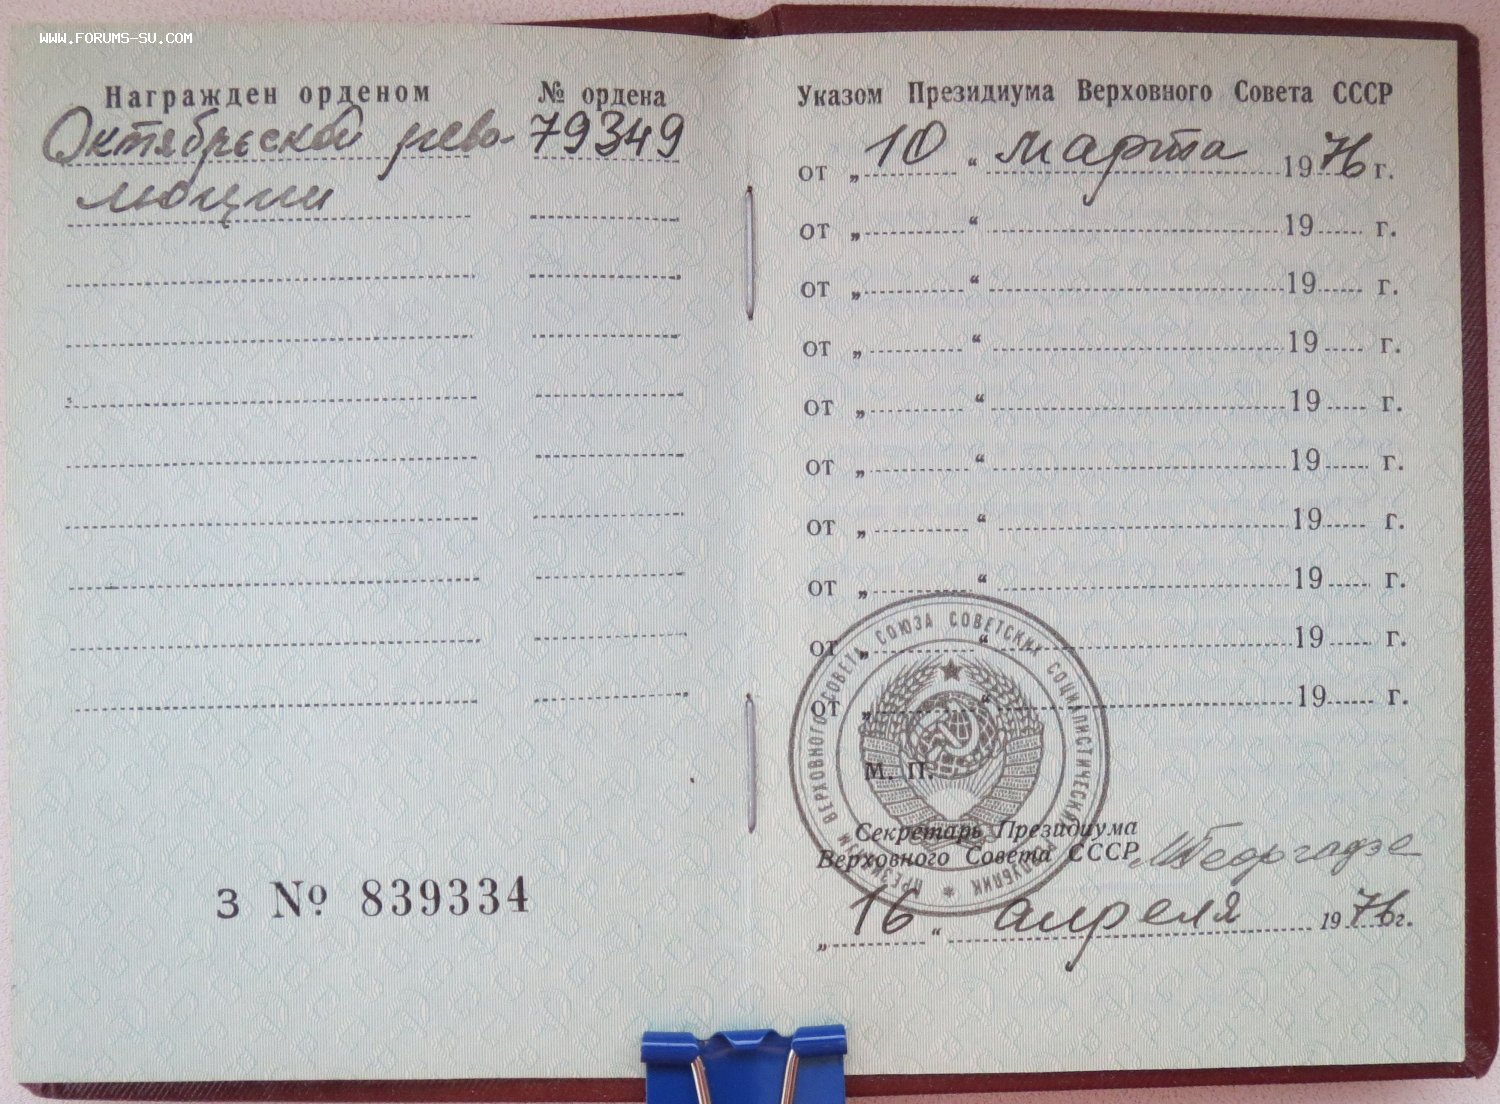 WWW.FORUMS-SU.COM
Награжден орденом № ордена
Октябрьской рево- 79349
люции
З № 839334
Указом Президиума Верховного Совета СССР
от „ 10 “ марта 1976 г.
от „ “ 19 г.
от „ “ 19 г.
от „ “ 19 г.
от „ “ 19 г.
от „ “ 19 г.
от „ “ 19 г.
от „ “ 19 г.
от „ “ 19 г.
от „ “ 19 г.
ПРЕЗИДИУМ ВЕРХОВНОГО СОВЕТА СОЮЗА СОВЕТСКИХ СОЦИАЛИСТИЧЕСКИХ РЕСПУБЛИК
М. П.
Секретарь Президиума
Верховного Совета СССР МГеоргадзе
„ 16 “ апреля 1976 г.